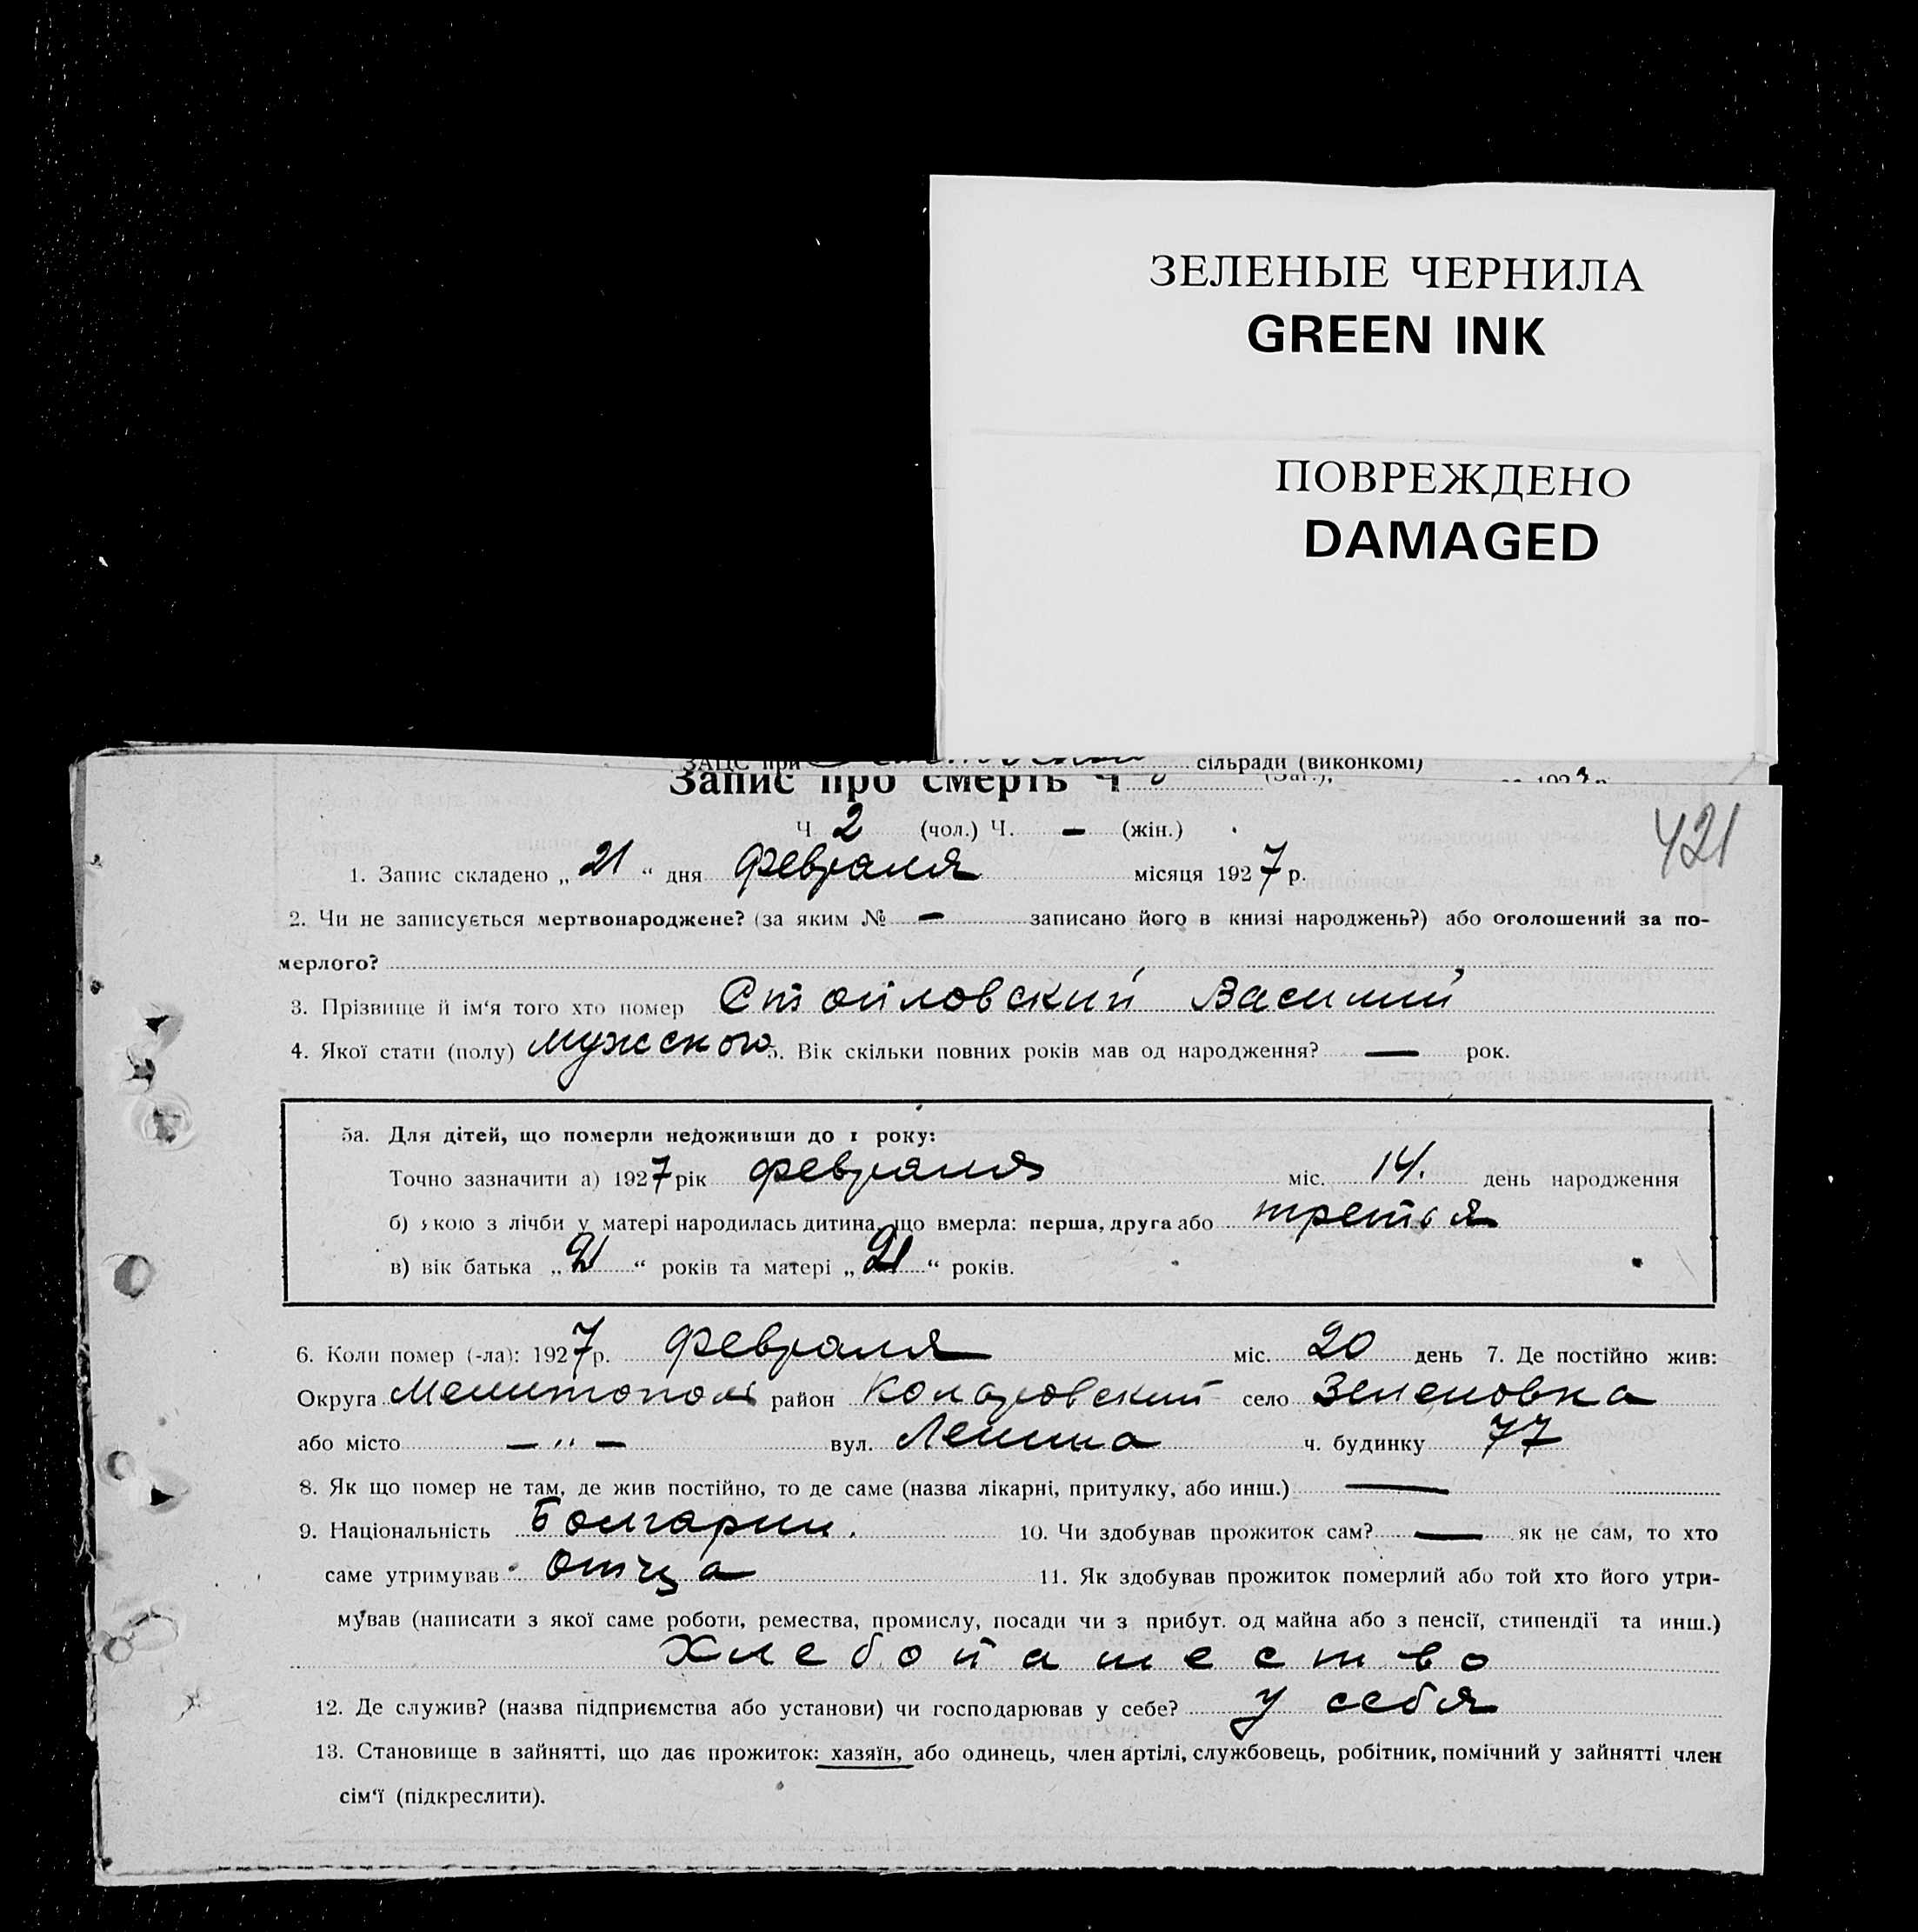 ЗЕЛЕНЫЕ ЧЕРНИЛА
GREEN INK
ПОВРЕЖДЕНО
DAMAGED
ЗАЦС при сільради (виконкомі)
Запис про смерть Ч
421
Ч 2 (чол.) Ч. — (жін.)
1. Запис складено „ 21 “ дня февраля місяця 1927 р.
2. Чи не записується мертвонароджене? (за яким № — записано його в книзі народжень?) або оголошений за по-
мерлого?
3. Прізвище й ім‘я того хто помер Стойловский Василий
4. Якої стати (полу) мужского 5. Вік скільки повних років мав од народження? — рок.
5а. Для дітей, що померли недоживши до 1 року:
Точно зазначити а) 1927 рік февраля міс. 14. день народження
б) якою з лічби у матері народилась дитина, що вмерла: перша, друга або третья
в) вік батька „ 21 “ років та матері „ 21 “ років.
6. Коли помер (-ла): 1927 р. февраля міс. 20 день 7. Де постійно жив:
Округа Мелитополь район Коларовский село Зеленовка
або місто — „ — вул. Ленина ч. будинку 77
8. Як що помер не там, де жив постійно, то де саме (назва лікарні, притулку, або инш.) —
9. Національність Болгарин. 10. Чи здобував прожиток сам? — як не сам, то хто
саме утримував отца 11. Як здобував прожиток померлий або той хто його утри-
мував (написати з якої саме роботи, ремества, промислу, посади чи з прибут. од майна або з пенсії, стипендії та инш.)
Хлебопашество
12. Де служив? (назва підприємства або установи) чи господарював у себе? у себя
13. Становище в зайнятті, що дає прожиток: хазяїн, або одинець, член артілі, службовець, робітник, помічний у зайнятті член
сім‘ї (підкреслити).